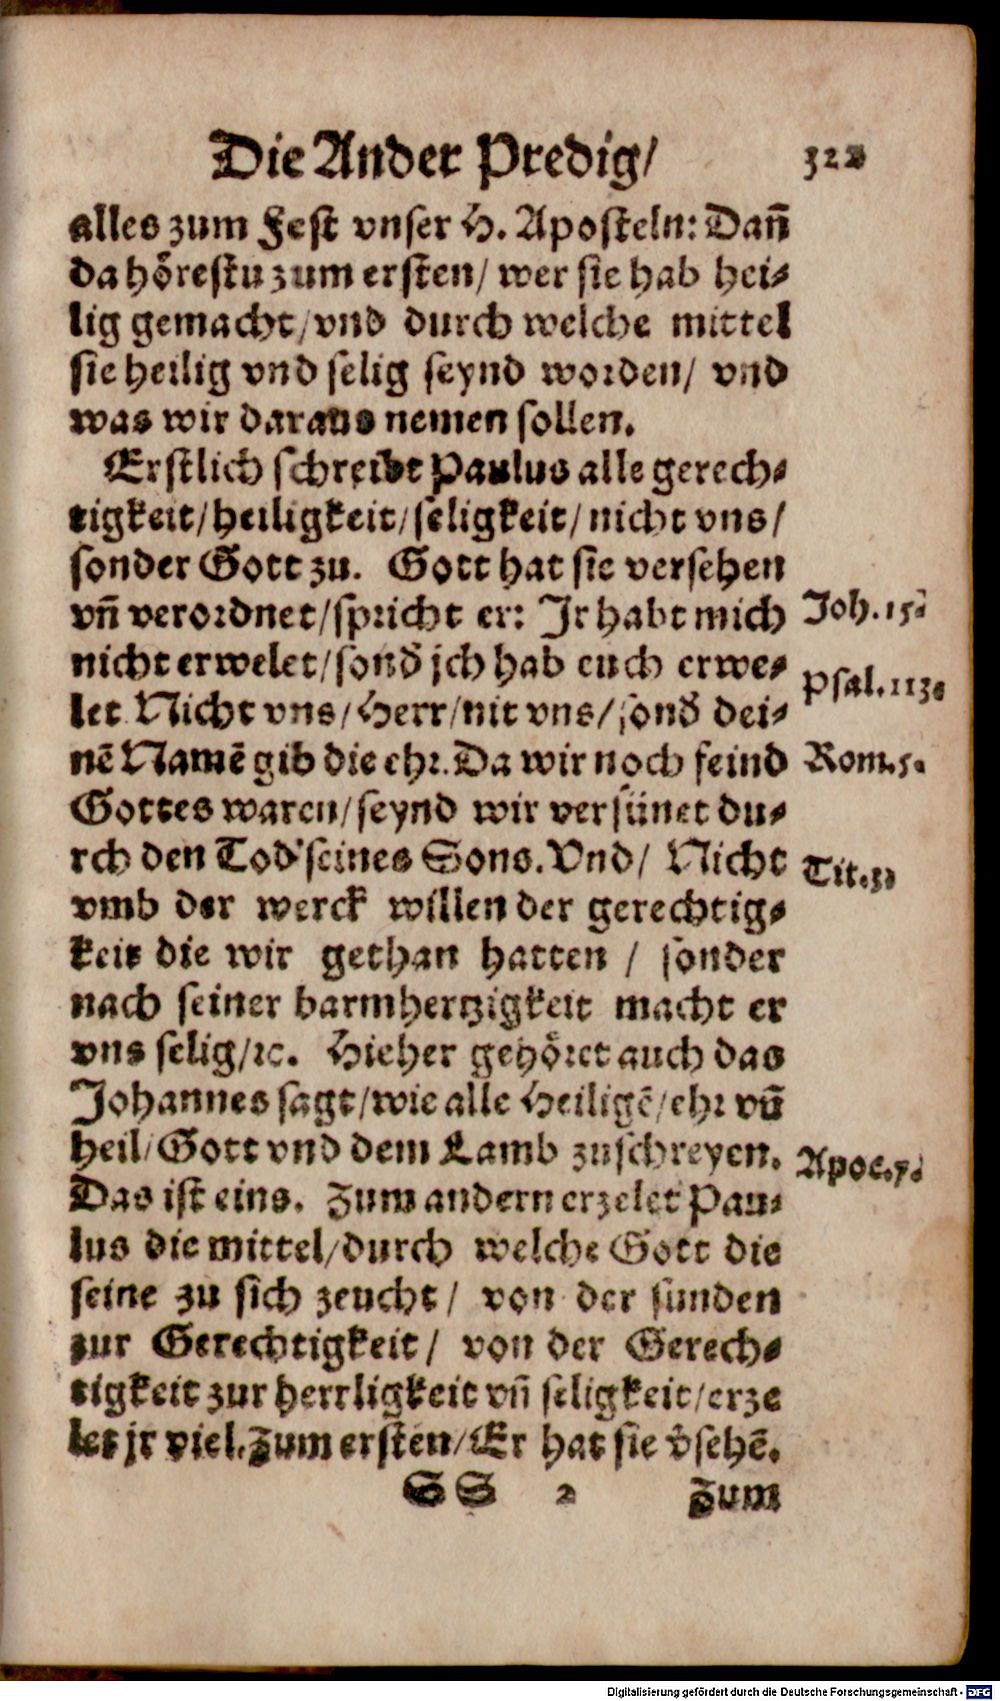 Die Ander Predig/ 322
alles zum Fest vnser H. Aposteln: Dañ
da hoͤrestu zum ersten/ wer sie hab hei-
lig gemacht/ vnd durch welche mittel
sie heilig vnd selig seynd worden/ vnd
was wir daraus nemen sollen.
Erstlich schreibt Paulus alle gerech-
tigkeit/ heiligkeit/ seligkeit/ nicht vns/
sonder Gott zu. Gott hat sie versehen
vñ verordnet/ spricht er: Jr habt mich
Joh. 15.
nicht erwelet/ sond̄ jch hab euch erwe-
Psal. 113.
let Nicht vns/ Herr/ nit vns/ sond̄ dei-
nē Namē gib die ehr. Da wir noch feind
Rom. 5.
Gottes waren/ seynd wir versünet du-
rch den Tod seines Sons. Vnd/ Nicht
Tit. 3.
vmb der werck willen der gerechtig-
keit die wir gethan hatten / sonder
nach seiner barmhertzigkeit macht er
vns selig/ ꝛc. Hieher gehoͤret auch das
Johannes sagt/ wie alle Heiligē/ ehr vñ
heil/ Gott vnd dem Lamb zuschreyen.
Apoc. 7.
Das ist eins. Zum andern erzelet Pau-
lus die mittel/ durch welche Gott die
seine zu sich zeucht/ von der sunden
zur Gerechtigkeit/ von der Gerech-
tigkeit zur herrligkeit vñ seligkeit/ erze
let jr viel. Zum ersten/ Er hat sie v̄sehē.
SS 2 Zum
Digitalisierung gefördert durch die Deutsche Forschungsgemeinschaft - DFG